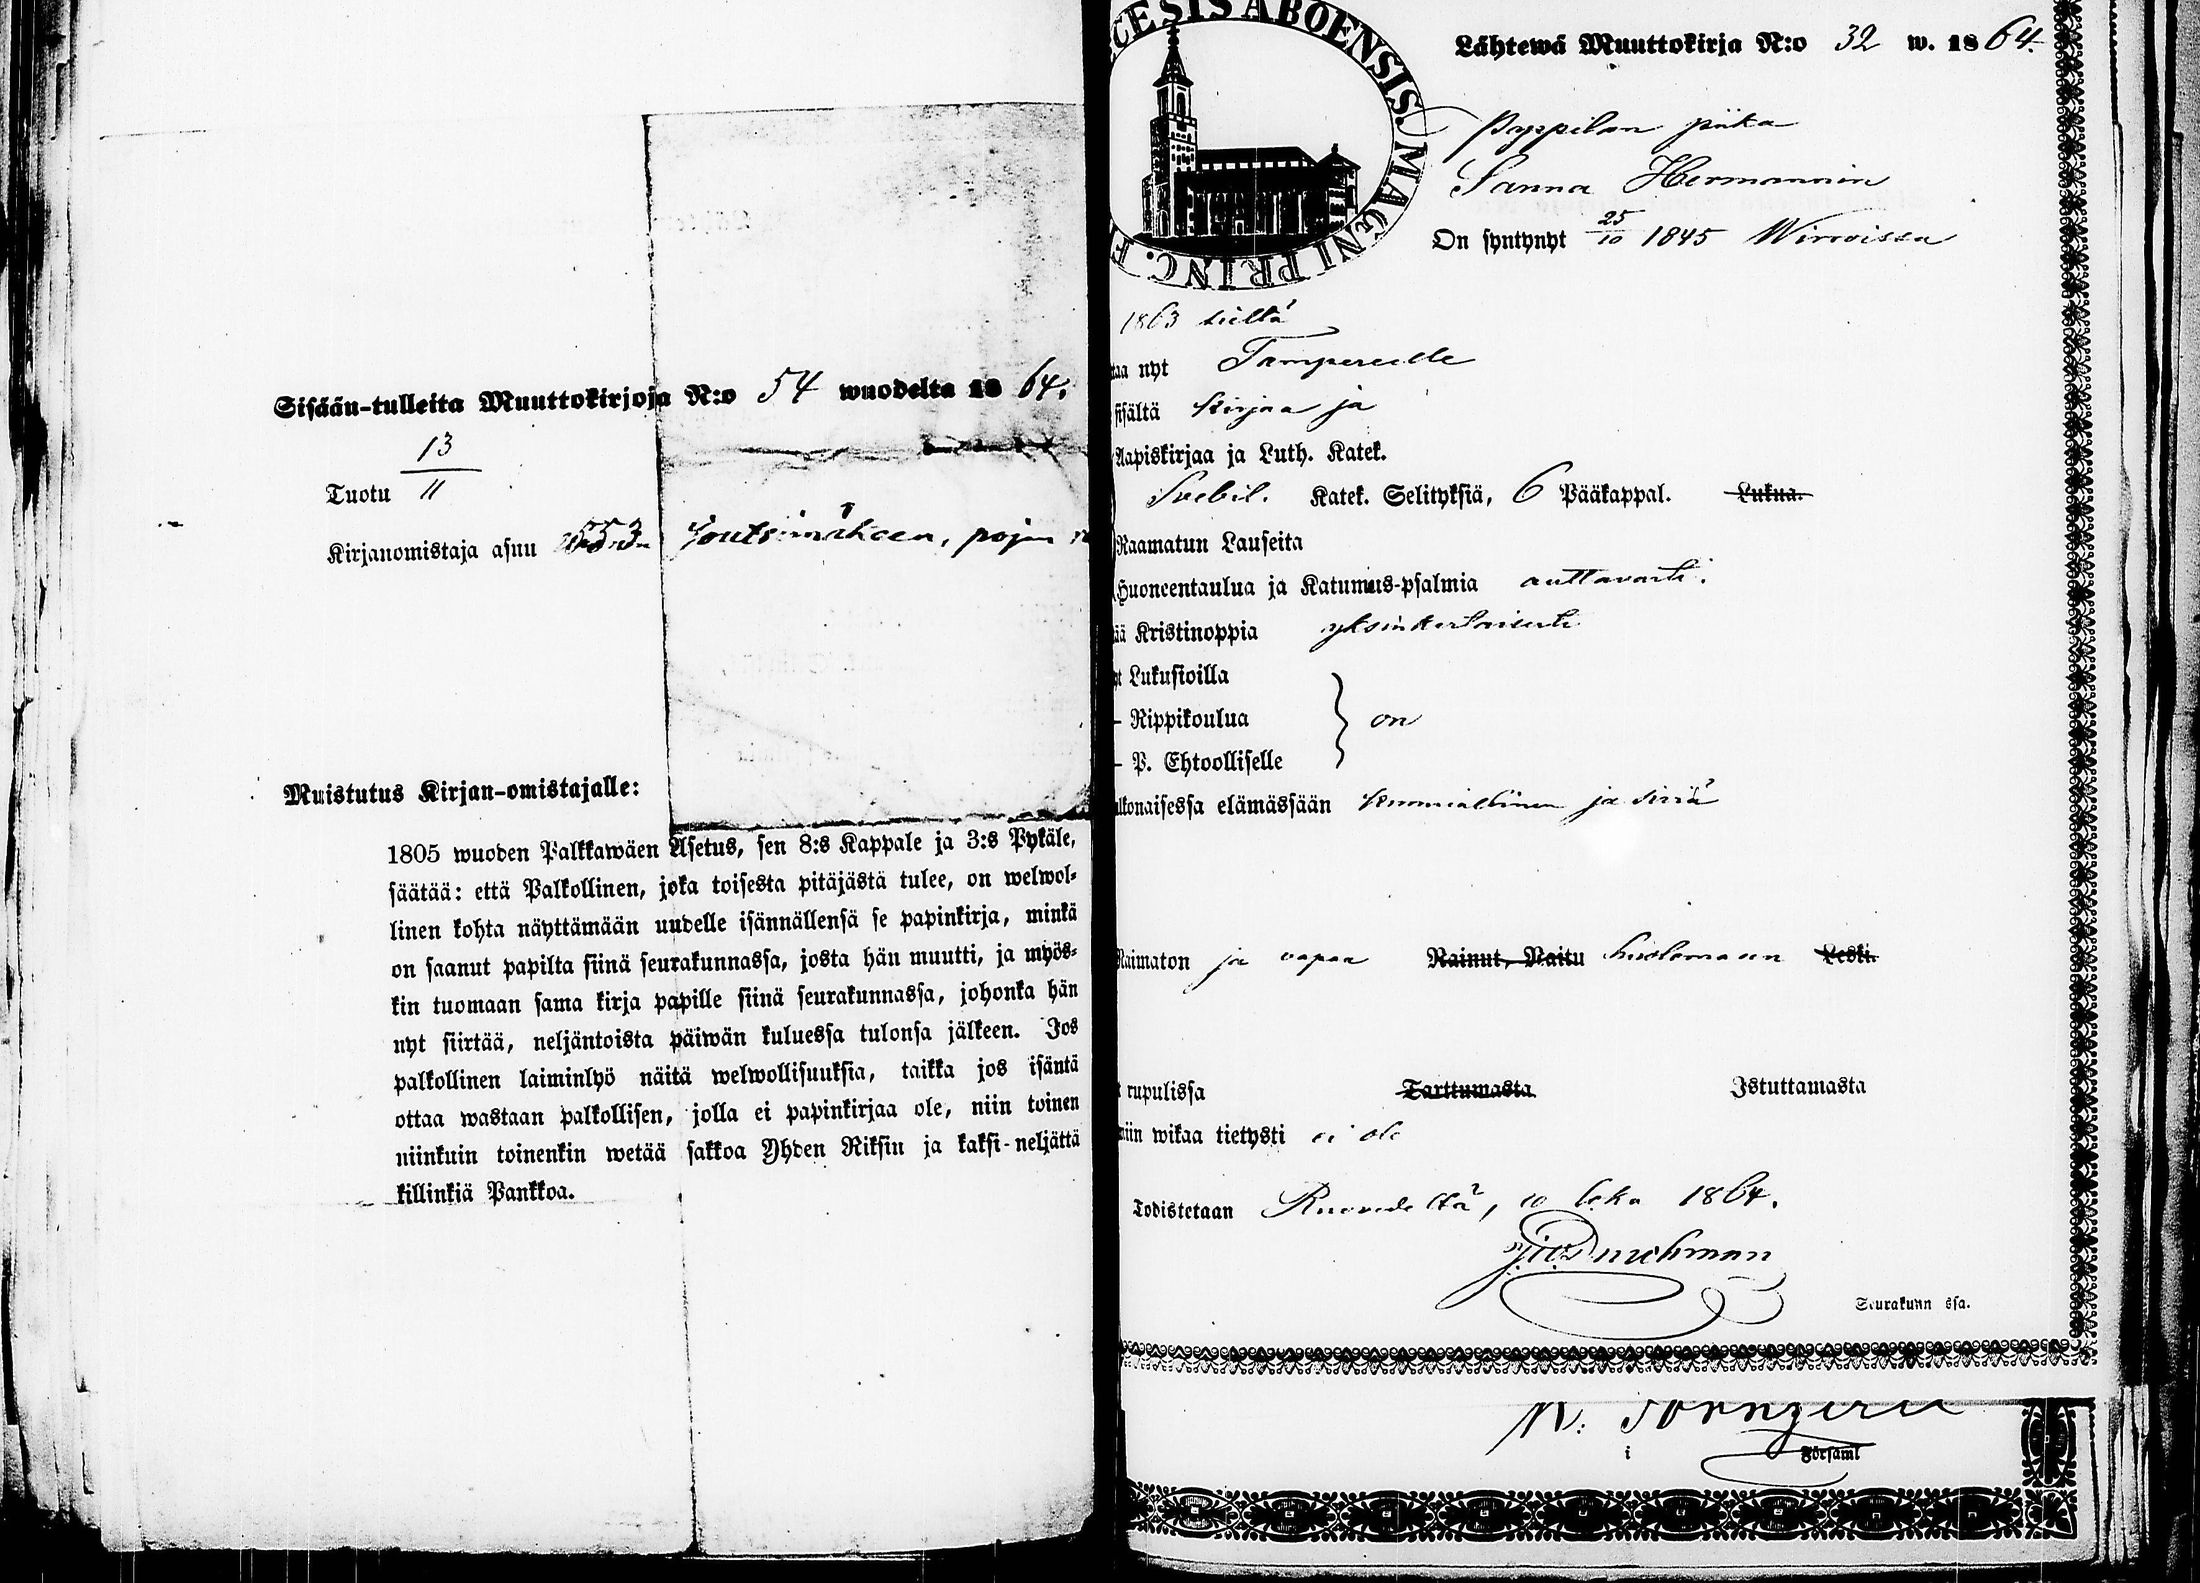 Sisään-tulleita Muuttokirjoja N:o 54 wuodelta 18 64.
13
Tuotu 11
Kirjanomistaja asuu
Joutsimäkeen, pojan
Muistutus Kirjan-omistajalle:
1805 wuoden Palkkawäen Asetus, sen 8:s Kappale ja 3:s Pykäle,
säätää: että Palkollinen, joka toisesta pitäjästä tulee, on welwol-
linen kohta näyttämään uudelle isännällensä se papinkirja, minkä
on saanut papilta siinä seurakunnassa, josta hän muutti, ja myös-
kin tuomaan sama kirja papille siinä seurakunnassa, johonka hän
nyt siirtää, neljäntoista päiwän kuluessa tulonsa jälkeen. Jos
palkollinen laiminlyö näitä welwollisuuksia, taikka jos isäntä
ottaa wastaan palkollisen, jolla ei papinkirjaa ole, niin toinen
niinkuin toinenkin wetää sakkoa Yhden Riksin ja kaksi-neljättä
killinkiä Pankkoa.
CESIS ABOENSIS. MAGNI PRINC. F
Lähtewä Muuttokirja N:o 32 w. 18 64.
Pappilan piika
Sanna Hermannin
On syntynyt 25/10 1845 Wirroissa
1863 sieltä
taa nyt Tampereelle
sisältä kirjaa ja
Aapiskirjaa ja Luth. Katek.
Svebil. Katek. Selityksiä, 6 Pääkappal. Lukua.
Raamatun Lauseita
Huoneentaulua ja Katumus-psalmia auttavasti.
ää Kristinoppia yksinkertaisesti
yt Lukusioilla
- Rippikoulua } on
- P. Ehtoolliselle
ulkonaisessa elämässään kunniallinen ja siviä
Naimaton ja vapaa Nainut, Naitu huolomaan Leski.
t rupulissa Tarttumasta Istuttamasta
niin wikaa tietysti ei ole
Todistetaan Ruovedeltä, 10 loka 1864.
Seurakunn ssa.
i Församl